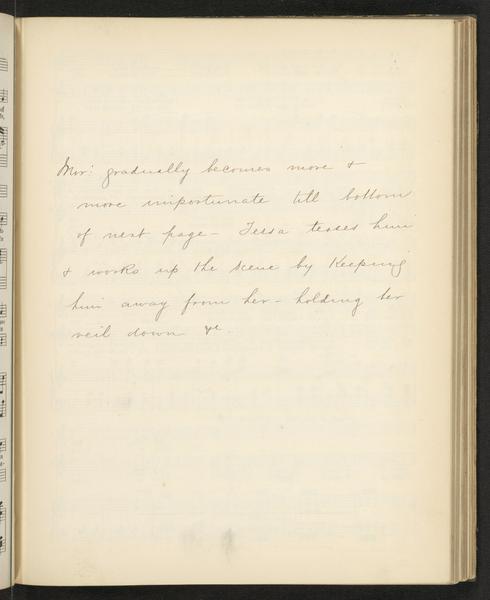 Mir: gradually becomes more &
more importunate till bottom
of next page - Tessa teases him
& works up the scene by keeping
him away from her - holding her
veil down &c.